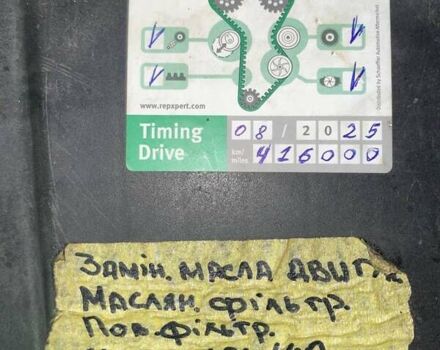 Distributed by Schaeffler Automotive Aftermarket
www.repxpert.com
Timing 08/2025
Drive km/miles 416000
ЗАМІН. МАСЛА ДВИГ
МАСЛЯН. ФІЛЬТР.
ПОВ. ФІЛЬТР.